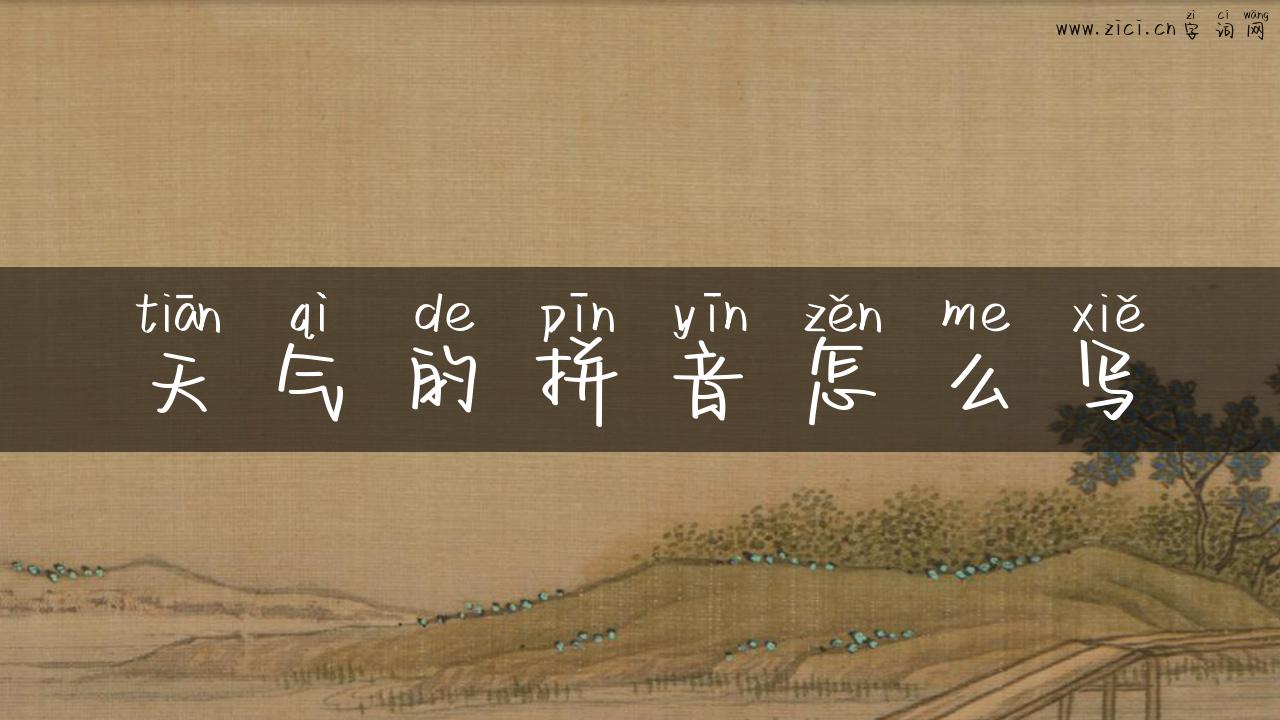 zì cí wǎng
www.zici.cn字词网
tiān qì de pīn yīn zěn me xiě
天气的拼音怎么写